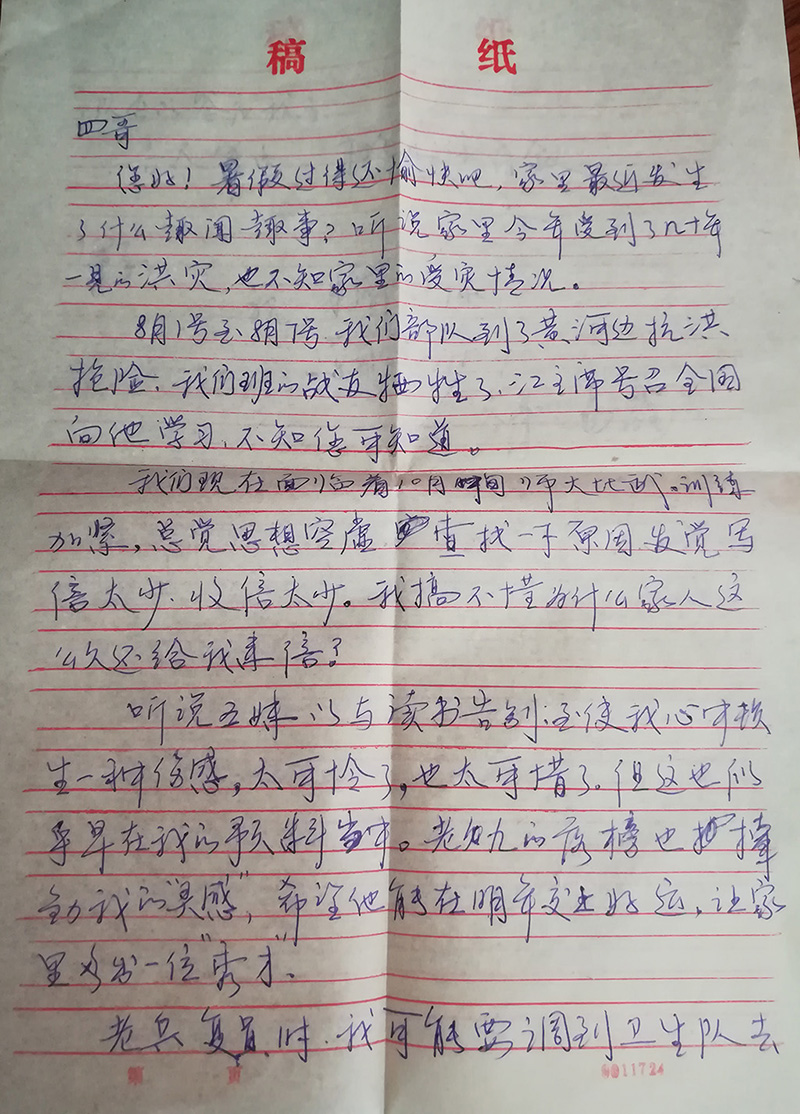 稿 纸
四哥
您好！暑假过得还愉快吧，家里最近发生
了什么趣闻趣事？听说家里今年受到了几十年
一见的洪灾，也不知家里的受灾情况。
8月1号至8月7号，我们部队到了黄河边抗洪
抢险，我们班的战友牺牲了，江主席号召全国
向他学习，不知您可知道。
我们现在面临着10月 师大比武。训练
加紧，总觉思想空虚 查找一下原因发觉写
信太少，收信太少。我搞不懂为什么家人这
么久还给我来信？
听说五妹以与读书告别，至使我心中
生一种伤感，太可怜了，也太可惜了。但这也似
乎早在我的预料当中。老幺九的落榜也 撞
动我的“灵感”，希望他能在明年交上好运，让家
里多出一位“秀才”。
老兵复员时，我可能要调到卫生队去
第 页 0011724